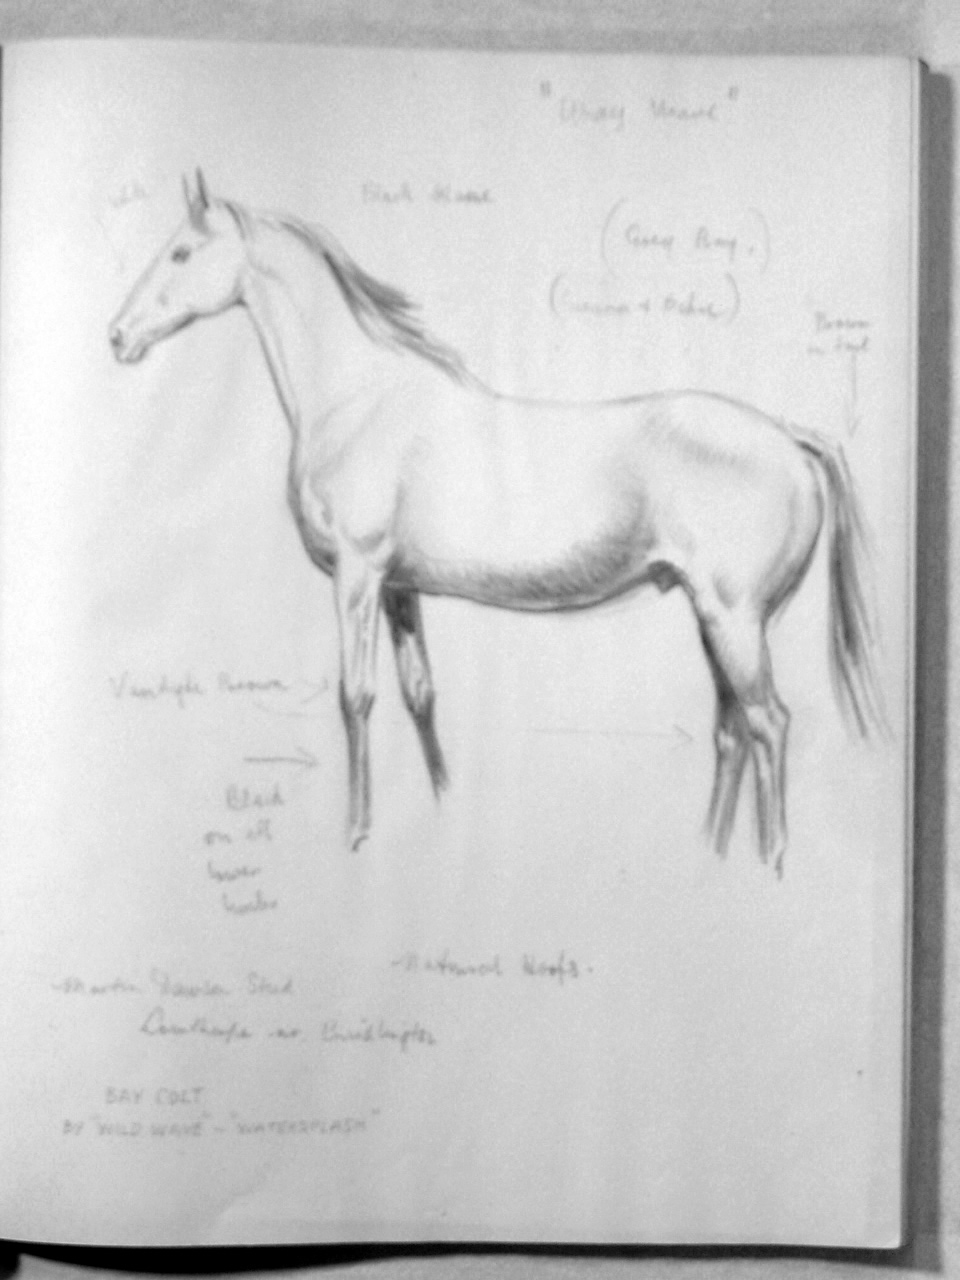 Black Mane
(Grey Bay.)
Brown
in tail
Vandyke Brown
Black
on all
lower
limbs
Natural Hoofs.
Martin Stud
nr. Bridlington
BAY COLT
BY "WILD WAVE" - "WATERSPLASH"